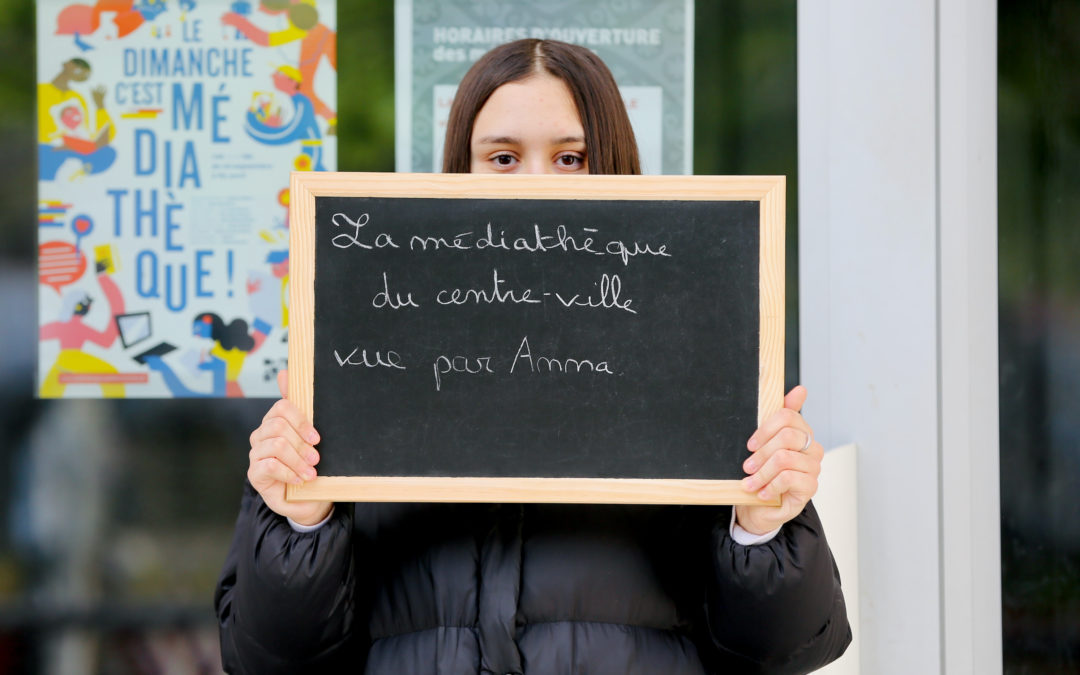 LE
DIMANCHE
C'EST MÉ
DIA
THÈ
QUE!
HORAIRES D'OUVERTURE
des
La médiathèque
du centre-ville
vue par Anna.